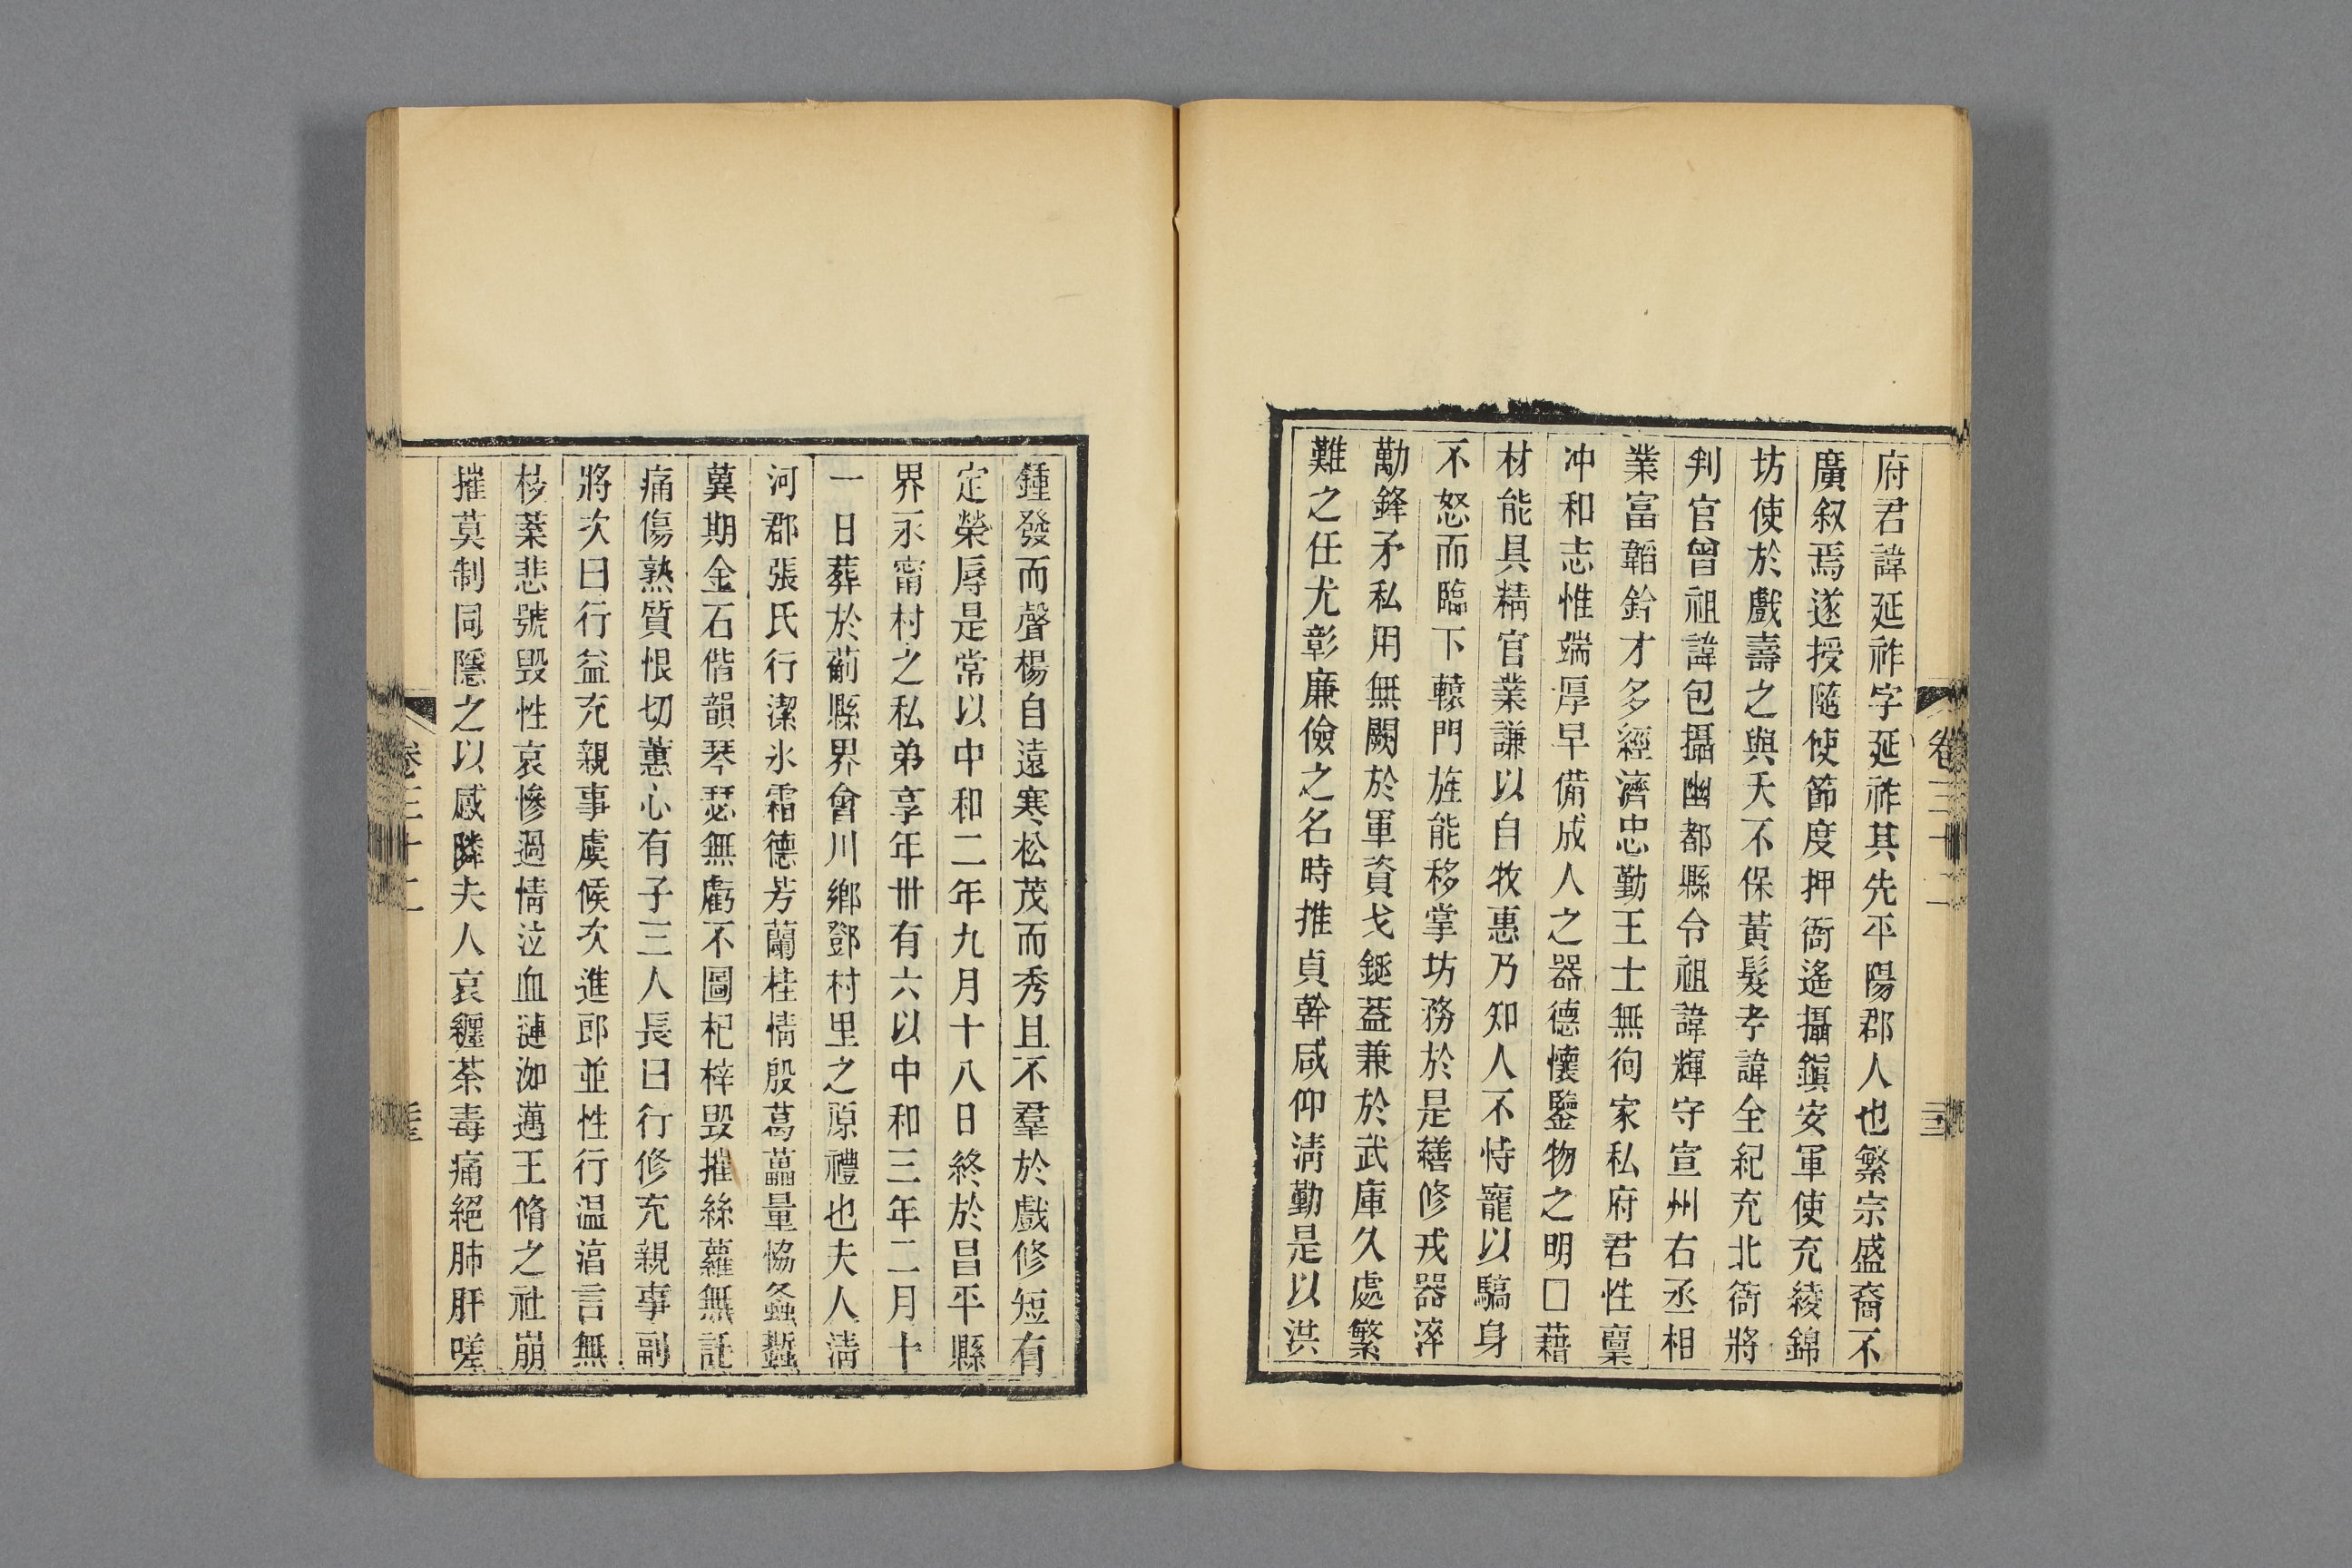 府君諱延祚字延祚其先平陽郡人也繁宗盛裔不
廣叙焉遂授隨使節度押衙遙攝鎭安軍使充綾錦
坊使於戲壽之與夭不保黃髮考諱全紀充北衙將
判官曾祖諱包攝幽都縣令祖諱輝守宣州右丞相
業富韜鈐才多經濟忠勤王士無徇家私府君性稟
冲和志惟端厚早備成人之器德懷鑒物之明□藉
材能具精官業謙以自牧惠乃知人不恃寵以驕身
不怒而臨下轅門旌能移掌坊務於是繕修戎器淬
勵鋒矛私用無闕於軍資戈鋋蓋兼於武庫久處繁
難之任尤彰廉儉之名時推貞幹咸仰淸勤是以洪
鍾發而聲楊自遠寒松茂而秀且不羣於戲修短有
定榮辱是常以中和二年九月十八日終於昌平縣
界永甯村之私弟享年卌有六以中和三年二月十
一日葬於薊縣界會川鄉鄧村里之原禮也夫人淸
河郡張氏行潔氷霜德芳蘭桂情殷葛藟量恊螽蟴
冀期金石偕韻琴瑟無虧不圖杞梓毀摧絲蘿無託
痛傷熟質恨切蕙心有子三人長曰行修充親事副
將次曰行益充親事虞候次進郎並性行温㵎言無
枝葉悲號毀性哀慘過情泣血漣洳邁王脩之社崩
摧莫制同隱之以感鄰夫人哀纏荼毒痛絕肺肝嗟
卷三十二